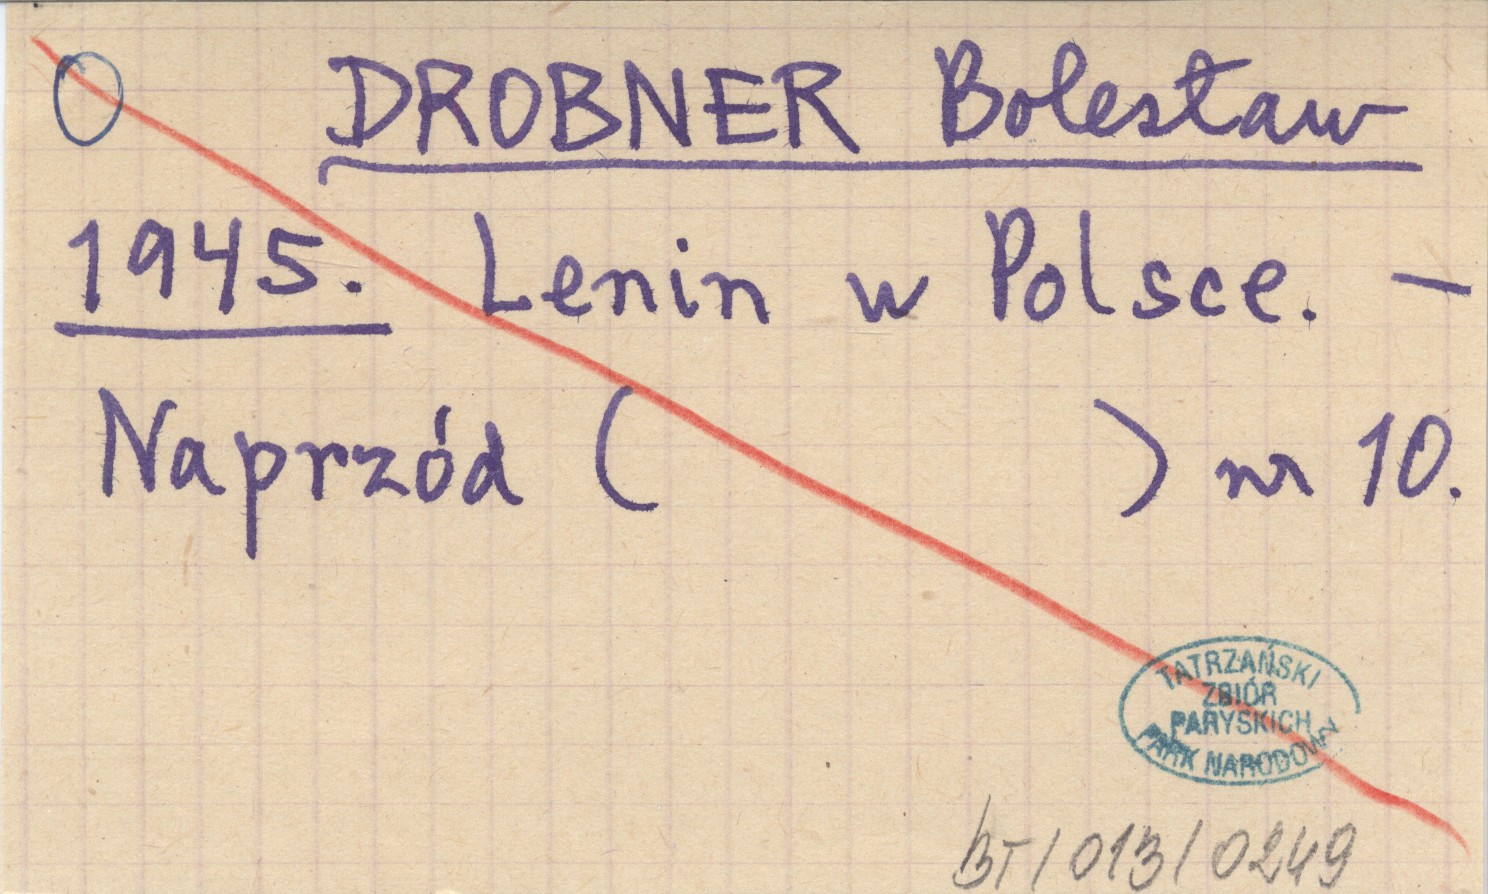 DROBNER Bolesław
1945. Lenin w Polsce. –
Naprzód (                    ) nr 10.
TATRZAŃSKI
ZBIÓR
PARYSKICH
PARK NARODOWY
BT/013/0249